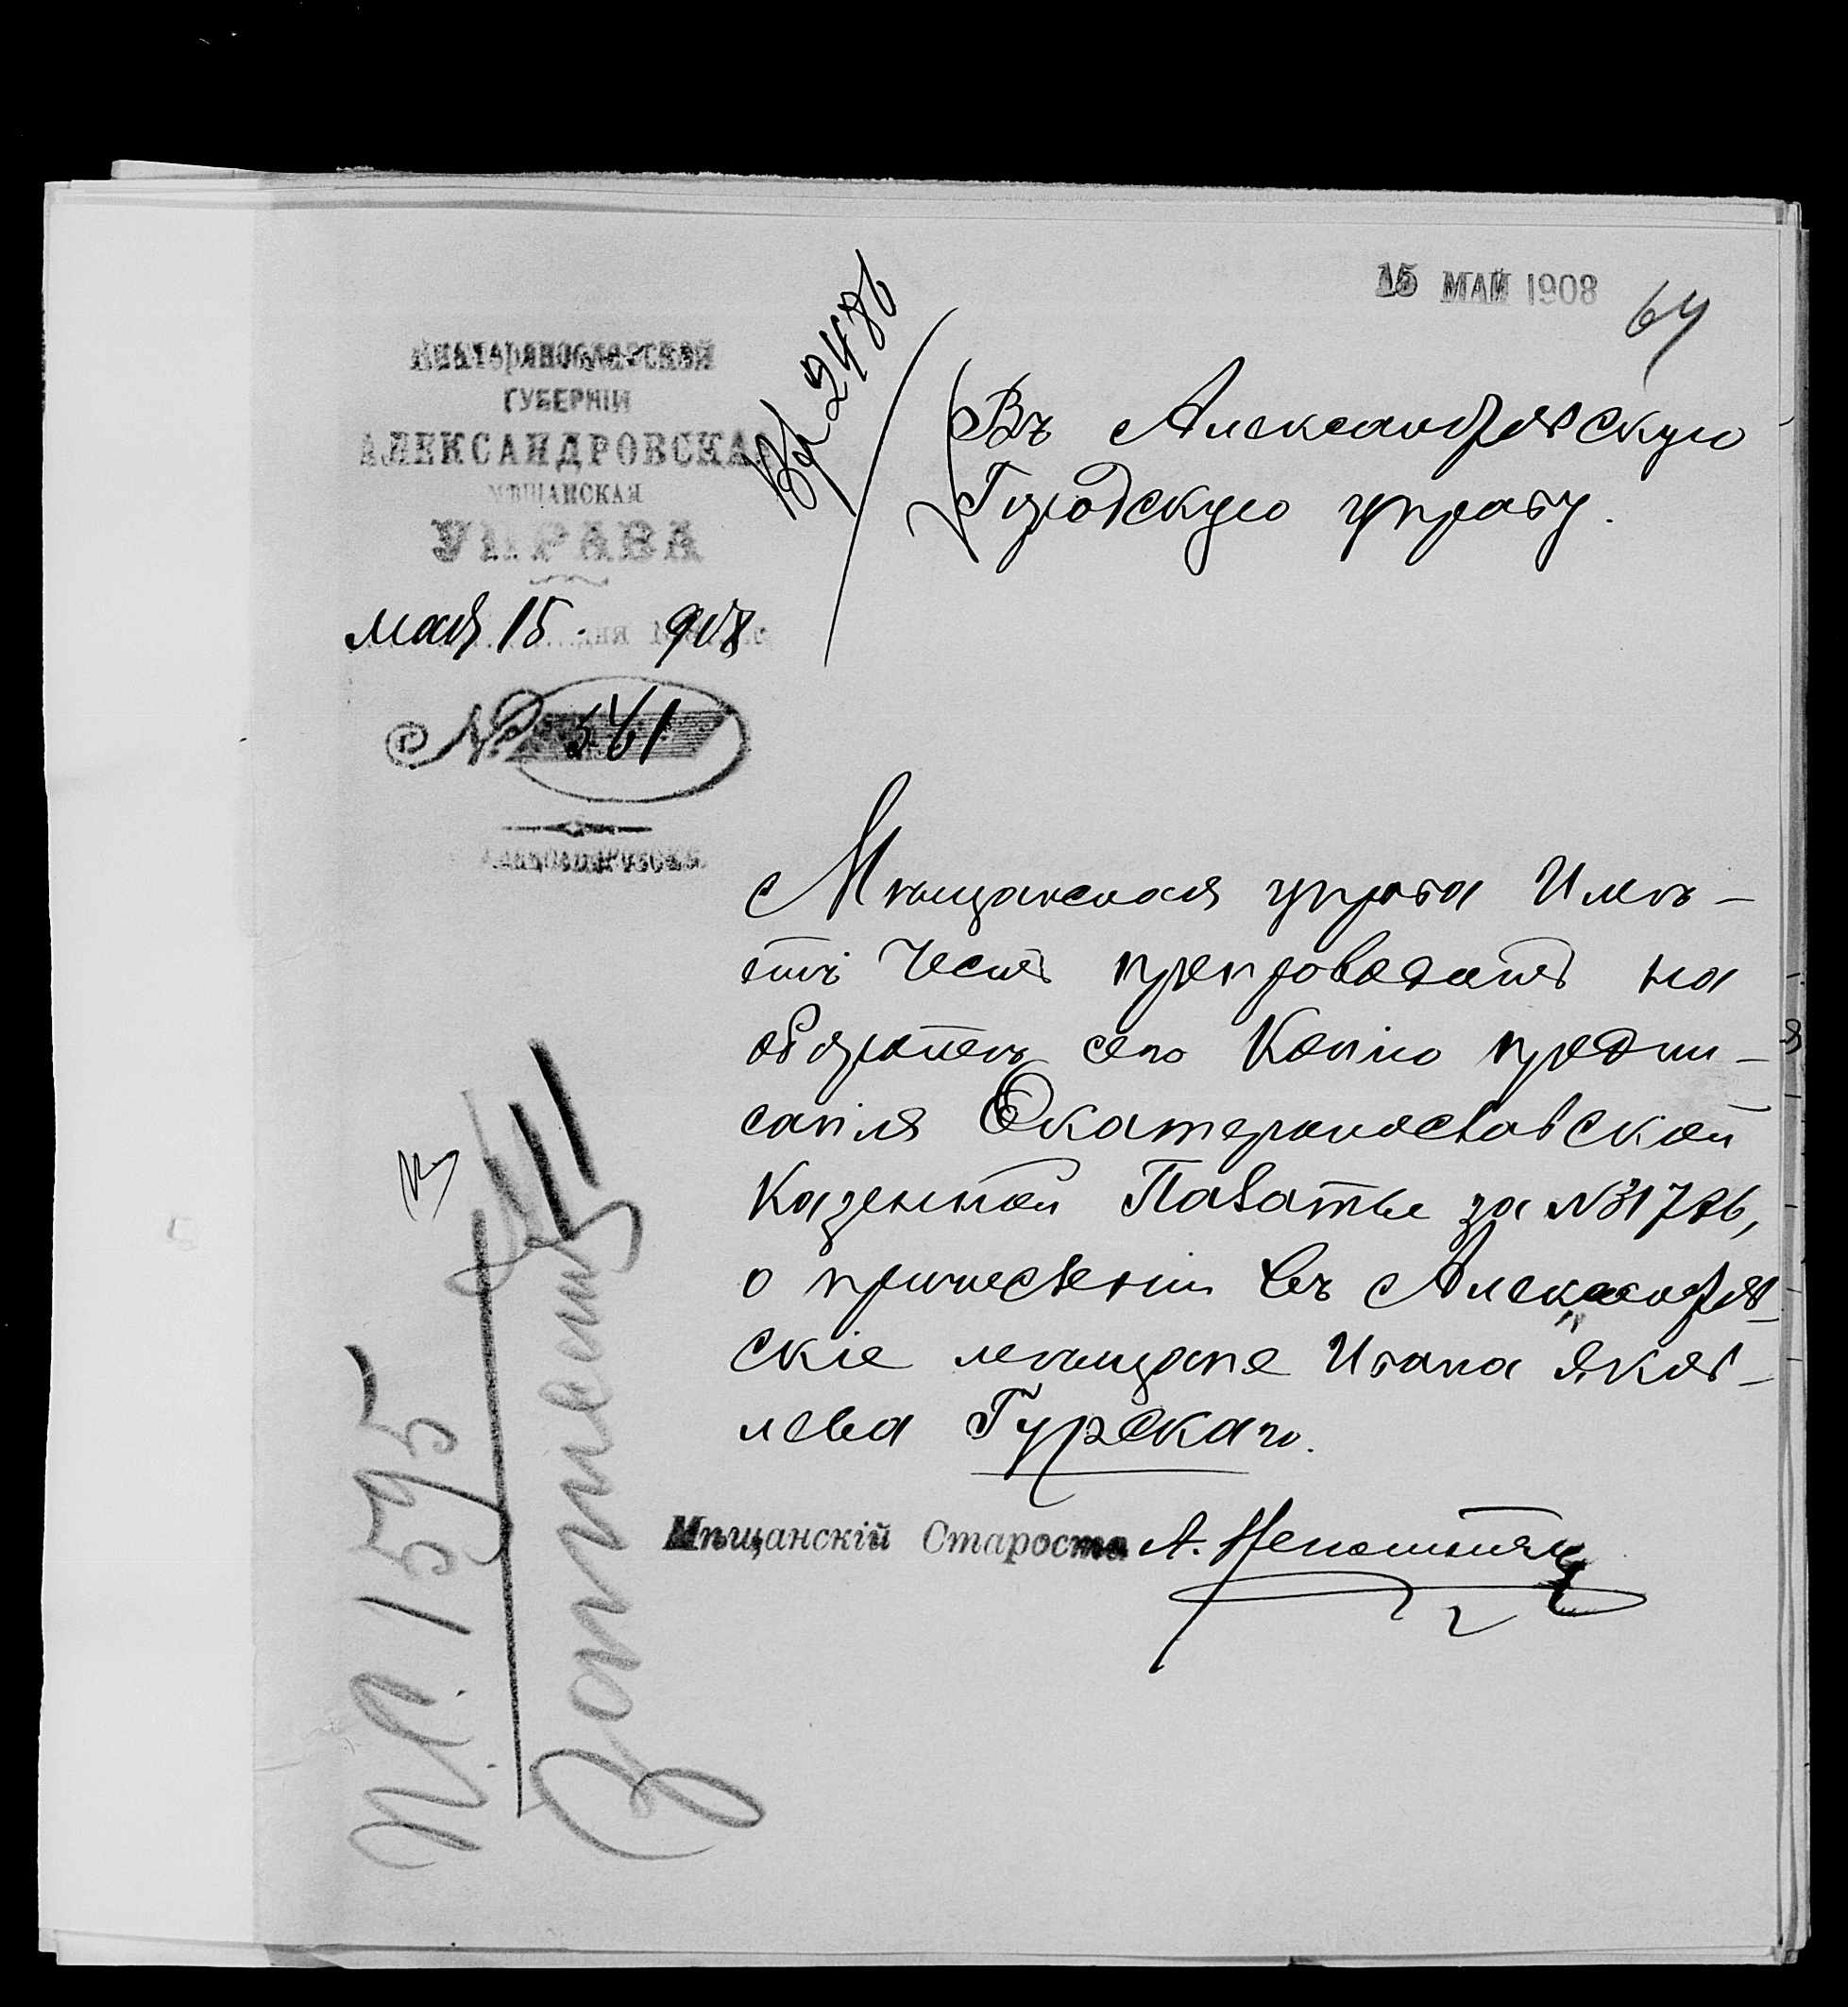 15 МАЙ 1908
64
Вх 2486
Екатеринославской
ГУБЕРНІИ
АЛЕКСАНДРОВСКАЯ
МѢЩАНСКАЯ
УПРАВА
мая 15 дня 1908 г.
№ 561
Александровскъ.
Въ Александровскую
Городскую управу.
Мѣщанская управа Имѣ-
етъ Честь препроводить на
оборотѣ сего Копію предпи-
санія Екатеринославской
Казенной Палаты за №31786,
о причисленіи въ Александров-
скіе мѣщане Ивана Яков-
лева Гурскаго.
Мѣщанскій Староста А.
1595